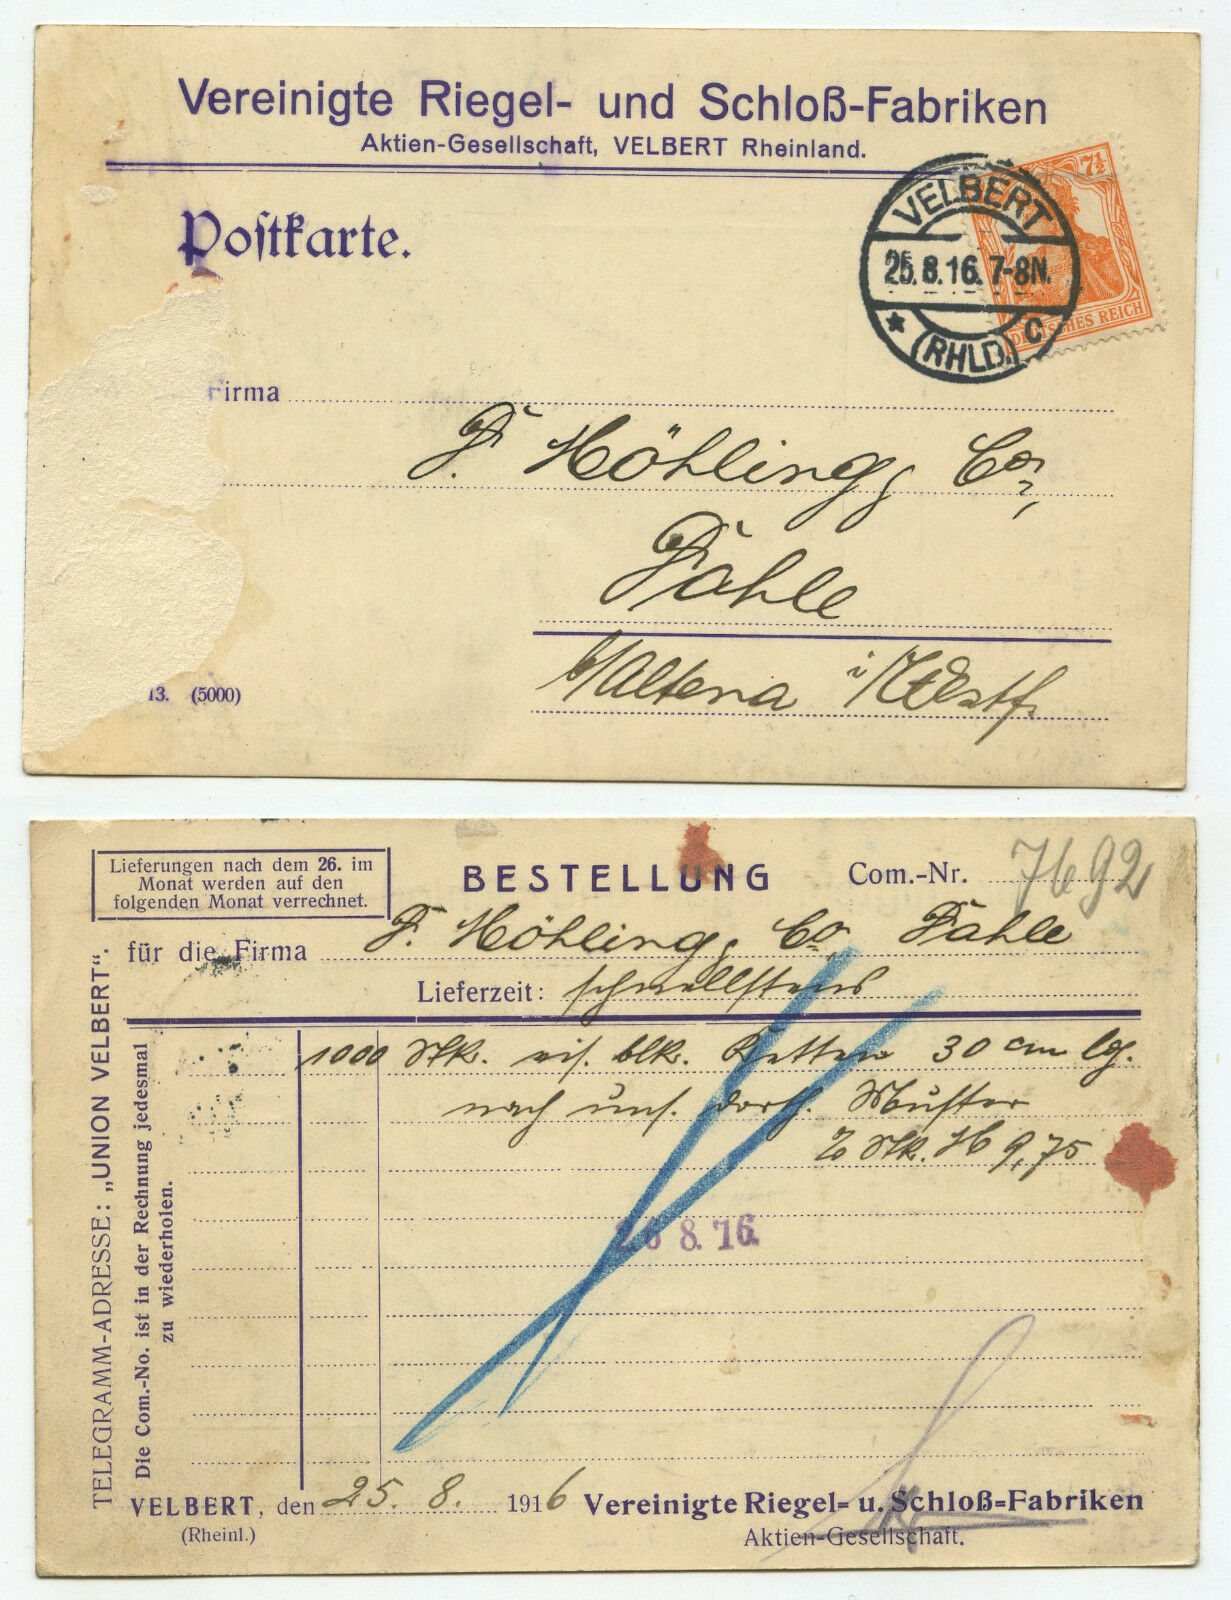 Vereinigte Riegel- und Schloß-Fabriken
Aktien-Gesellschaft, VELBERT Rheinland.
Postkarte.
VELBERT
25.8.16. 7-8N.
* (RHLD.) C
7½
DEUTSCHES REICH
Firma
F. Höhling, Co.,
Dahle
b/Altena i/Westf.
13. (5000)
Lieferungen nach dem 26. im
Monat werden auf den
folgenden Monat verrechnet.
BESTELLUNG
Com.-Nr. 7692
für die Firma F. Höhling, Co. Dahle
Lieferzeit: schnellstens
1000 Stk. eis. blk. Ketten 30 cm lg.
nach uns. dort. Muster
% Stk. M 9,75
26 8. 16.
TELEGRAMM-ADRESSE: „UNION VELBERT“.
Die Com.-No. ist in der Rechnung jedesmal
zu wiederholen.
VELBERT, den 25. 8. 1916
(Rheinl.)
Vereinigte Riegel= u. Schloß=Fabriken
Aktien-Gesellschaft.